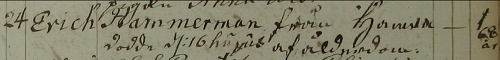 24 Erich Hammerman från Hammer — 1
dödde d: 16 hujus af ålderdom. 68 år